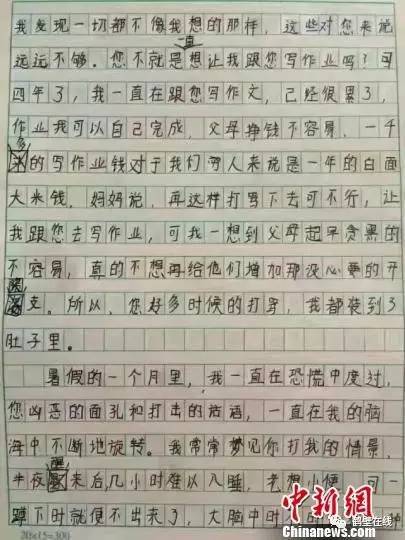 我发现一切都不像我想的那样,这些对您来说
远远不够。您不就是一直想让我跟您写作业吗?可
四年了,我一直在跟您写作文,已经很累了,
作业我可以自己完成,父母挣钱不容易,一千
多的写作业钱对于我们穷人来说是一年的白面
大米钱,妈妈说,再这样打骂下去可不行,让
我跟您去写作业,可我一想到父母起早贪黑的
不容易,真的不想再给他们增加那没必要的开
支。所以,您好多时候的打骂,我都装到了
肚子里。
暑假的一个月里,我一直在恐慌中度过,
您凶恶的面孔和打击的话语,一直在我的脑
海中不断地旋转。我常常梦见你打我的情景,
半夜醒来后几小时难以入睡,老想小便,可一
蹲下时就便不出来了,大脑中时
20×15=300
中新网
Chinanews.com
鹤壁在线